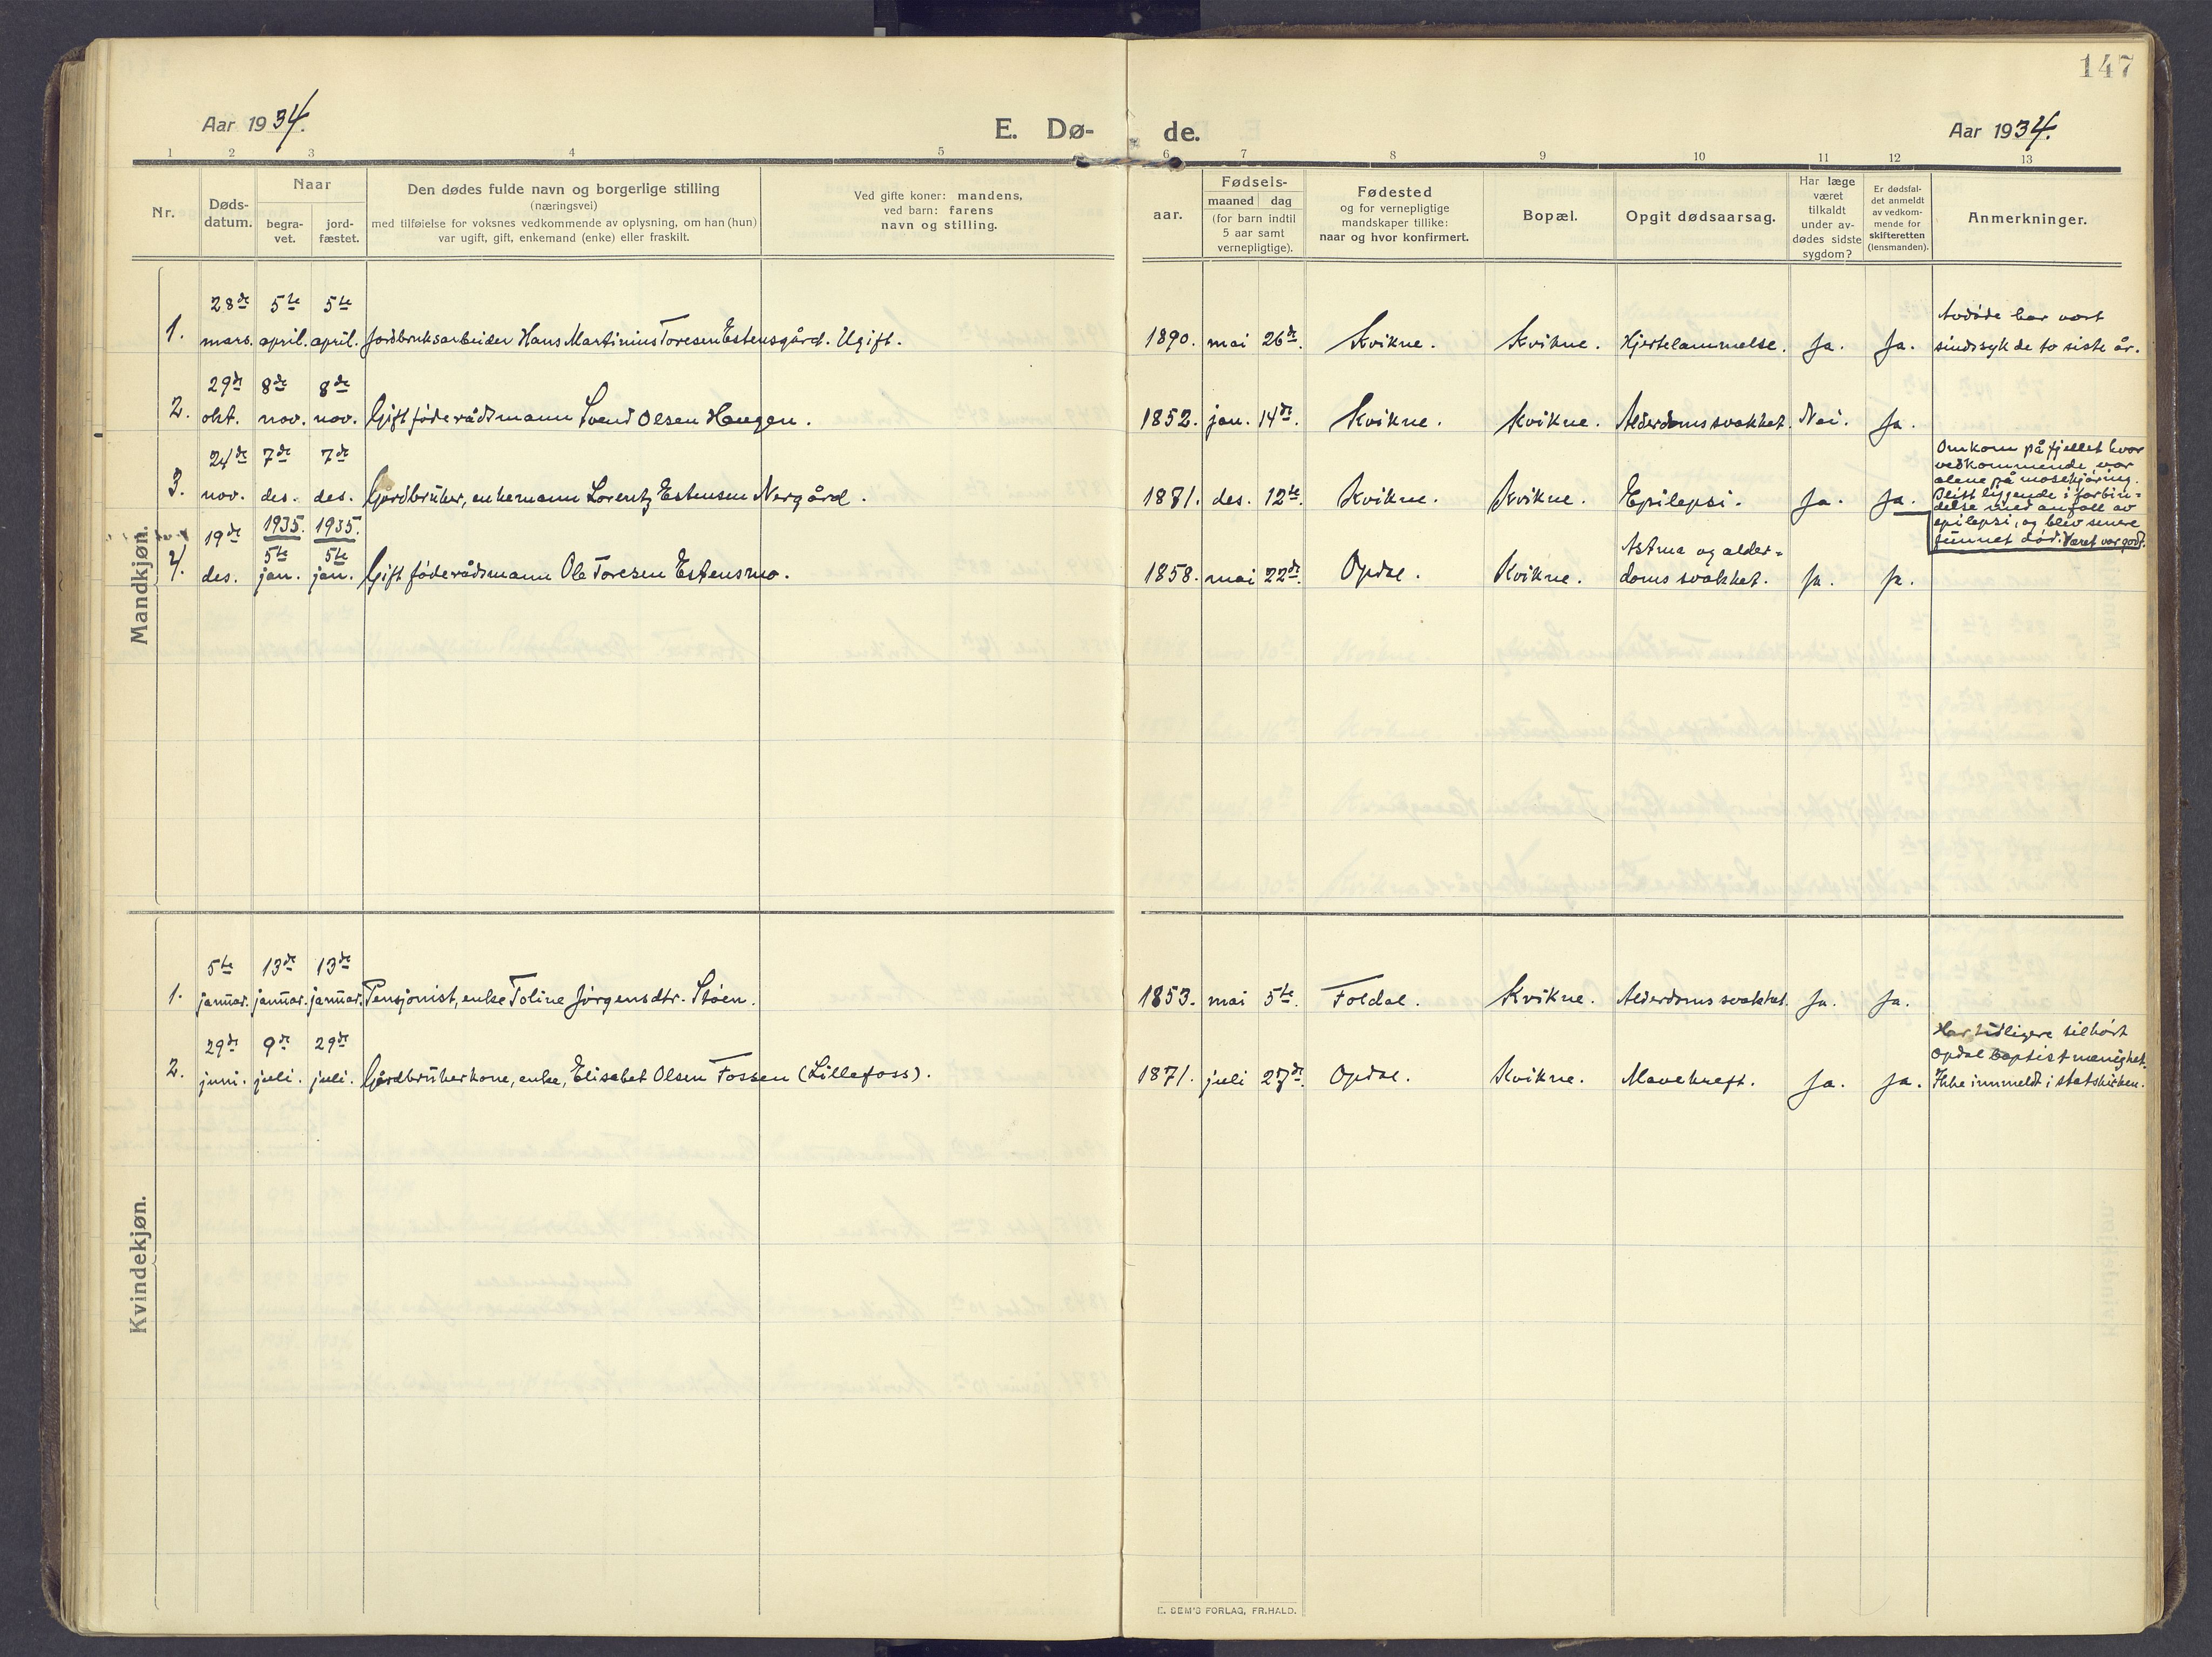 147
Aar 1934.
E. Dø- de.
Aar 1934.
1 2 3 4 5 6 7 8 9 10 11 12 13
Nr.
Døds-
datum.
Naar
begra-
vet.
jord-
fæstet.
Den dødes fulde navn og borgerlige stilling
(næringsvei)
med tilføielse for voksnes vedkommende av oplysning, om han (hun)
var ugift, gift, enkemand (enke) eller fraskilt.
Ved gifte koner: mandens,
ved barn: farens
navn og stilling.
aar.
Fødsels-
maaned dag
(for barn indtil
5 aar samt
vernepligtige).
Fødested
og for vernepligtige
mandskaper tillike:
naar og hvor konfirmert.
Bopæl.
Opgit dødsaarsag.
Har læge
været
tilkaldt
under av-
dødes sidste
sygdom?
Er dødsfal-
det anmeldt
av vedkom-
mende for
skifteretten
(lensmanden).
Anmerkninger.
Mandkjøn.
28de 5te 5te
1. mars. april. april. Jordbruksarbeider Hans Martinius Toresen Estensgård. Ugift. 1890. mai 26de. Kvikne. Kvikne. Hjertelammelse. Ja. Ja.
Avdøde har vært
sindssyk de to siste år.
29de 8de 8de
2. okt. nov. nov. Gift føderådsmann Svend Olsen Haugen. 1852. jan. 14de. Kvikne. Kvikne. Alderdomssvakhet. Nei. Ja.
24de 7de 7de
3. nov. des. des. Gårdbruker, enkemann Lorentz Estensen Nergård. 1881. des. 12te. Kvikne. Kvikne. Epilepsi. Ja. Ja.
Omkom på fjellet hvor
vedkommende var
alene på mosekjøring.
Blitt liggende i forbin-
delse med anfall av
epilepsi, og blev senere
funnet død. Været var godt.
19de 1935. 1935.
5te 5te
4. des. jan. jan. Gift føderådsmann Ole Toresen Estensmo. 1858. mai 22de. Opdal. Kvikne.
Astma og alder-
doms svakhet. Ja. Ja.
Kvindekjøn.
5te 13de 13de
1. januar. januar. januar. Pensjonist, enke Toline Jørgensdtr. Støen. 1853. mai 5te. Foldal. Kvikne. Alderdoms svakhet. Ja. Ja.
29de 9de 29de
2. juni. juli. juli. Gårdbrukerkone, enke, Elisabet Olsen Fossen (Lillefoss). 1871. juli 27de. Opdal. Kvikne. Mavekreft. Ja. Ja.
Har tidligere tilhørt
Opdal baptistmenighet.
Ikke innmeldt i statskirken.
E. SEM'S FORLAG, FR.HALD.